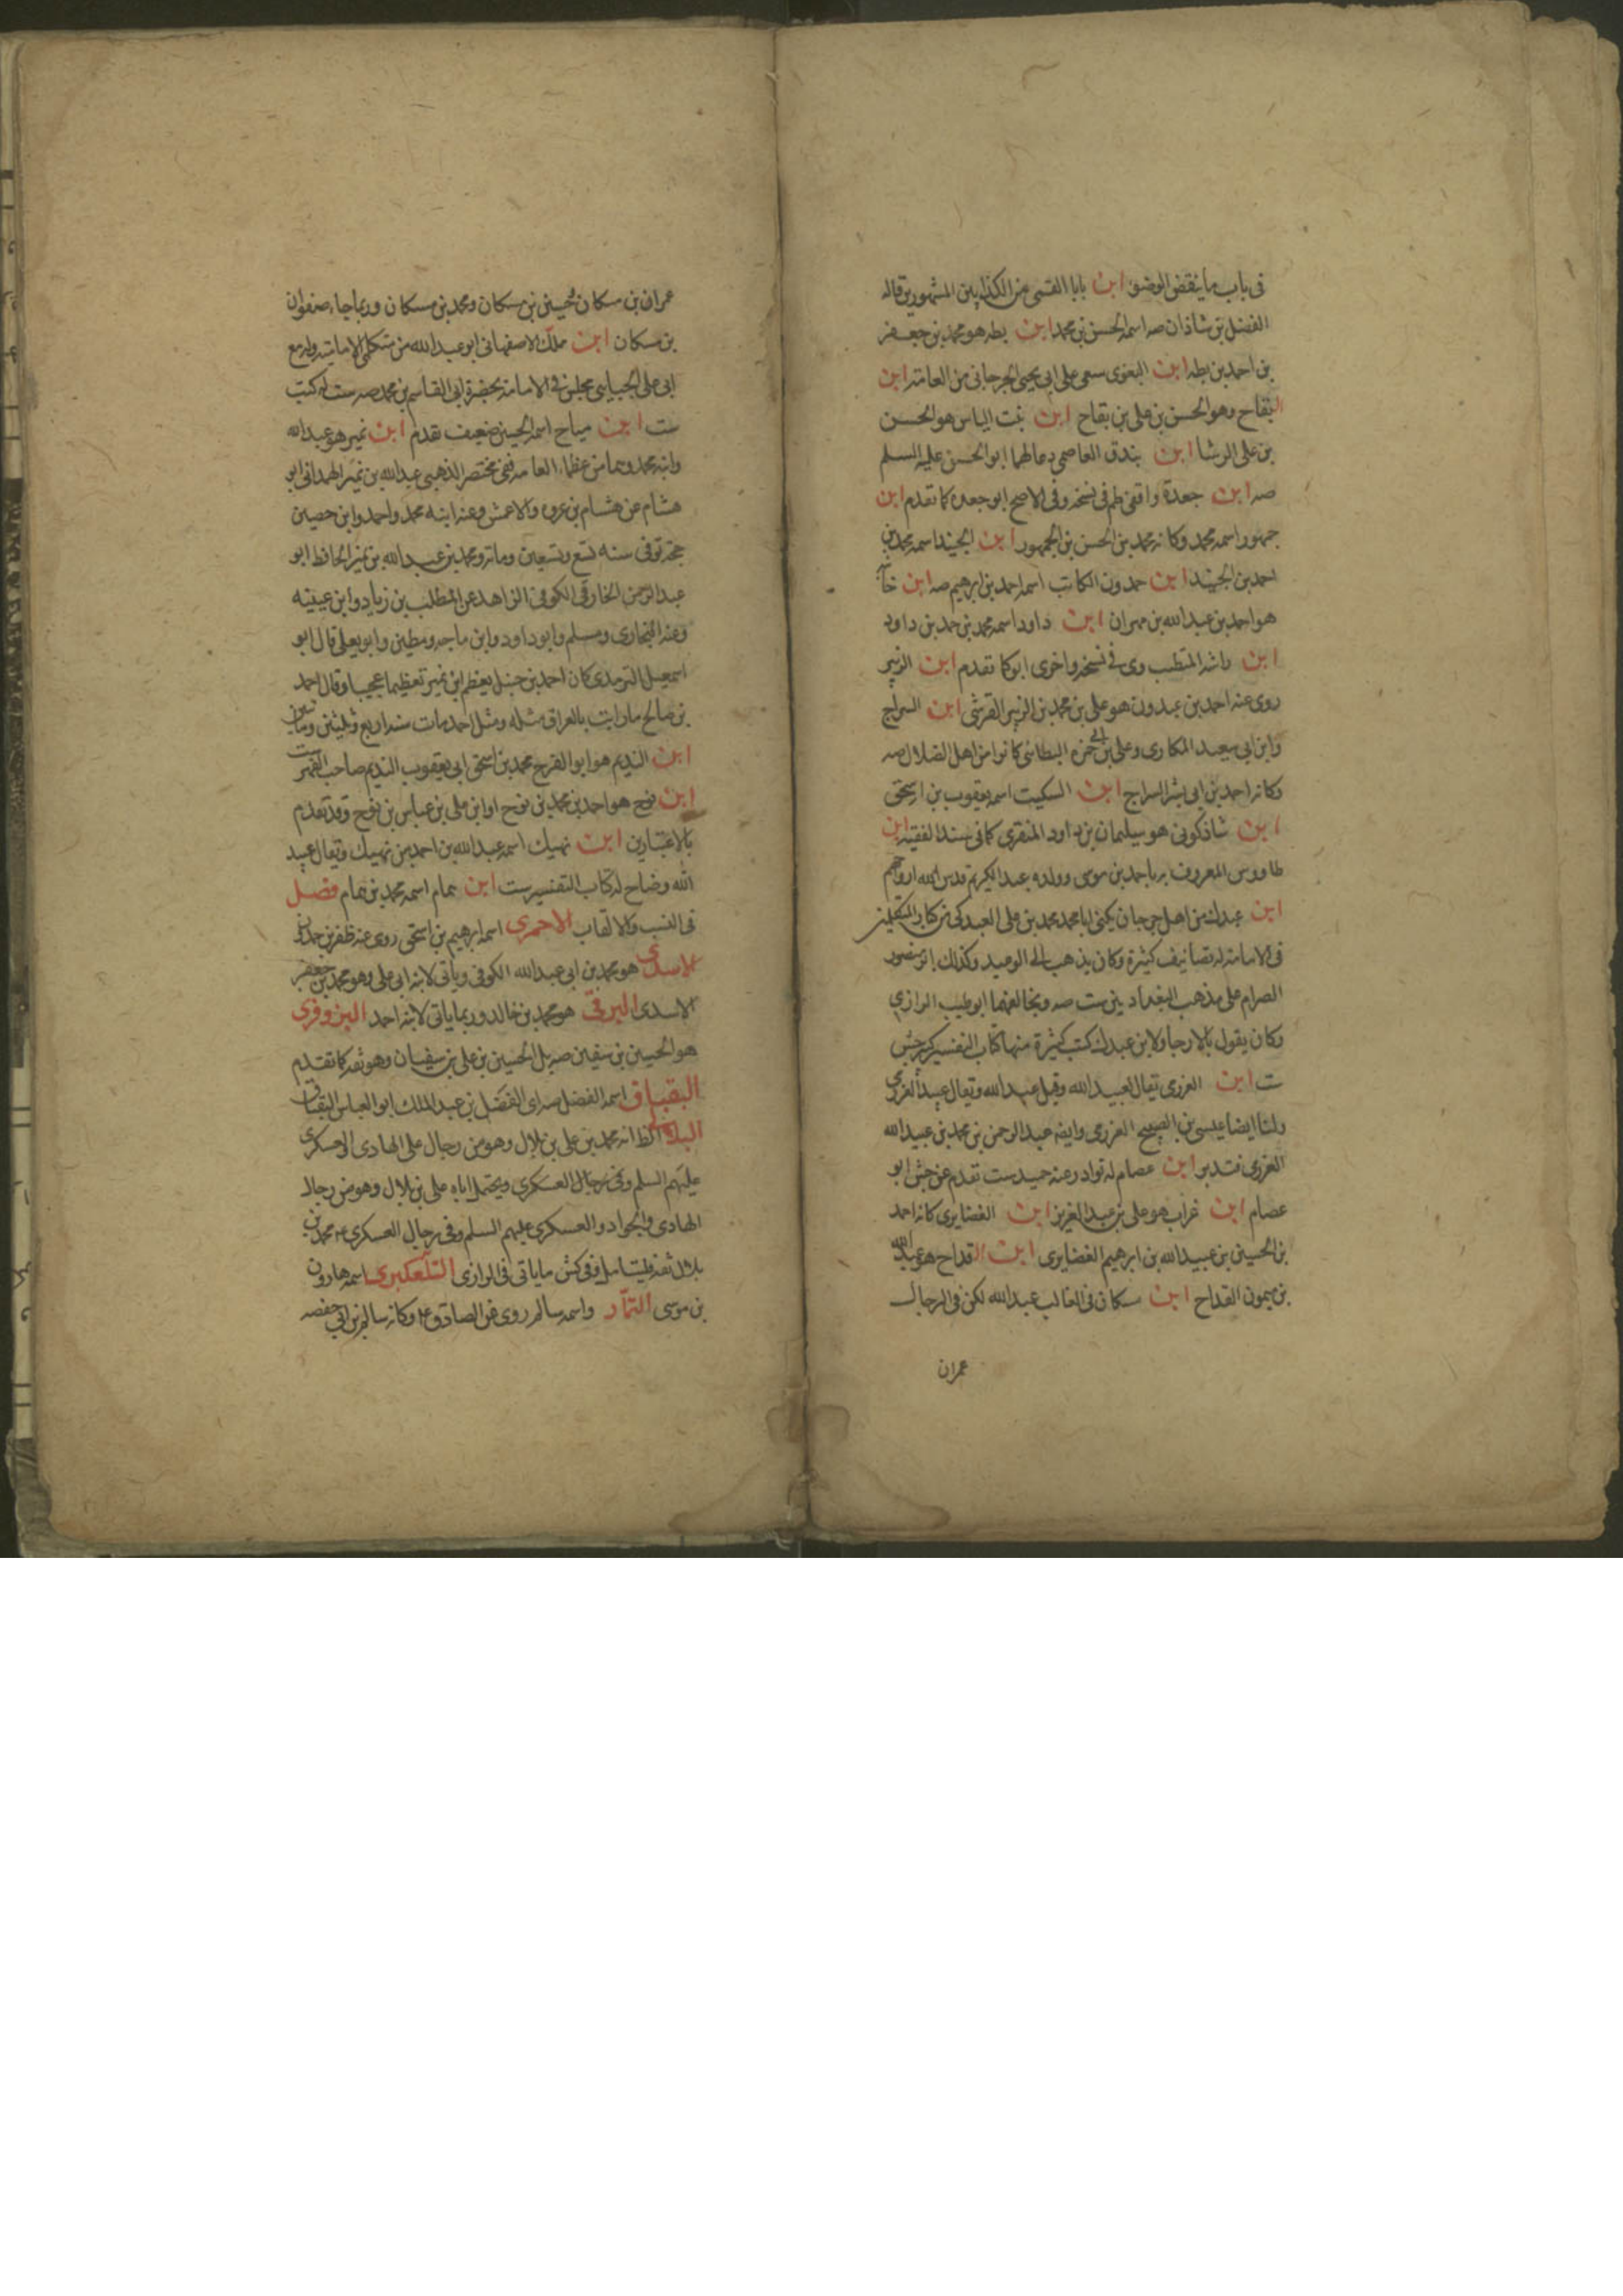 فى باب ما ينقض الوضوء ابن بابا القمى من الكذابين المشهورين قاله
الفضل بن شاذان صه اسمه الحسن بن محمد ابن بطه هو محمد بن جعفر
بن احمد بن بطه ابن البغوى سعى على ابى يحيى الجرجانى من العامة ابن
البقاح وهو الحسن بن على بن بقاح ابن بنت الياس هو الحسن
بن على الوشا ابن بندق العاصمى دعا لهما ابو الحسن عليه السلم
صه ابن جعدة واقفى ظم فى نسخه وفى الاصح ابو جعده كما تقدم ابن
جمهور اسمه محمد وكانه محمد بن الحسن بن الجمهور ابن الجنيد اسمه محمد بن
احمد بن الجنيد ابن حمدون الكاتب اسمه احمد بن ابرهيم صه ابن
هو احمد بن عبد الله بن مهران ابن داود اسمه محمد بن احمد بن داود
ابن راشد المتطبب وى فى نسخه واخرى ابو كما تقدم ابن الزبير
روى عنه احمد بن عبدون هو على بن محمد بن الزبير القرشى ابن السراج
وابن ابى سعيد المكارى وعلى بن ابى حمزه البطائنى كانوا من اهل الضلال صه
وكانه احمد بن ابى بشر السراج ابن السكيت اسمه يعقوب بن اسحق
ابن شاذكونى هو سليمان بن داود المنقرى كما فى سند الفقيه ابن
طاووس المعروف به باحمد بن موسى وولده عبد الكريم قدس الله ارواحهم
ابن عبدك من اهل جرجان يكنى ابا محمد محمد بن على العبدكى من كبار المتكلمين
فى الامامة له تصانيف كثيرة وكان يذهب الى الوعيد وكذلك ابو منصور
الصرام على مذهب البغداديين ست صه ويخالفهما ابو طيب الرازى
وكان يقول بالارجا ولابن عبدك كتب كثيرة منها كتاب التفسير كبير حسن
ست ابن العزرمى يقال لعبيد الله وقيل عبد الله ويقال عبيد العزرمى
ولنا ايضا عيسى بن الصبيح العزرمى وايضه عبد الرحمن بن محمد بن عبيد الله
العزرمى فتدبر ابن عصام له نوادر عنه حميد ست تقدم عن جش ابو
عصام ابن غراب هو على بن عبد العزيز ابن الغضايرى كانه احمد
بن الحسين بن عبيد الله بن ابرهيم الغضايرى ابن القداح هو عبد الله
بن ميمون القداح ابن سكان فى الغالب عبد الله لكن فى الرجال
عمران
عمران بن مسكان وحسين بن مسكان ومحمد بن مسكان وربما جاء صفوان
بن مسكان ابن مملك الاصفهانى ابو عبد الله من متكلمى الامامية وله مع
ابى على الجبايى مجلس فى الامامة بحضرة ابى القاسم بن محمد صه ست له كتب
ست ابن مياح اسمه الحسين ضعيف تقدم ابن نمير هو عبد الله
وابنه محمد وهما من عظماء العامه ففى مختصر الذهبى عبد الله بن نمير الهمدانى ابو
هشام عن هشام بن عروه والاعمش وعنه ابنه محمد واحمد وابن حصين
حجة توفى سنه تسع وتسعين ومائه ومحمد بن عبد الله بن نمير الحافظ ابو
عبد الرحمن الخارقى الكوفى الزاهد عن المطلب بن زياد وابن عيينه
وعنه البخارى ومسلم وابو داود وابن ماجه ومطين وابو يعلى قال ابو
اسمعيل الترمدى كان احمد بن حنبل يعظم ابن نمير تعظيما عجيبا وقال احمد
بن صالح ما رايت بالعراق مثله ومثل احمد مات سنه اربع وثلثين ومأتين
ابن النديم هو ابو الفرج محمد بن اسحق ابى يعقوب النديم صاحب الفهرست
ابن نوح هو احمد بن محمد بن نوح او ابن على بن عباس بن نوح وقد تقدم
بالاعتبارين ابن نهيك اسمه عبد الله بن احمد بن نهيك ويقال عبيد
الله وضاح له كتاب التفسير ست ابن همام اسمه محمد بن همام فصل
فى النسب والالقاب الاحمرى اسمه ابرهيم بن اسحق روى عنه ظفر بن حمدان
الاسدى هو محمد بن ابى عبد الله الكوفى وياتى لابنه ابى على وهو محمد بن جعفر
الاسدى البرقى هو محمد بن خالد وربما ياتى لابنه احمد البزوفرى
هو الحسين بن سفين صه بل الحسين بن على بن سفيان وهو ثقه كما تقدم
البقباق اسمه الفضل صه اى الفضل بن عبد الملك ابو العباس البقباق
البلالى الظ انه محمد بن على بن بلال وهو من رجال على الهادى والعسكرى
عليهم السلم وفى رجال العسكرى ويحتمل اباه على بن بلال وهو من رجال
الهادى والجواد والعسكرى عليهم السلم وفى رجال العسكرى ع محمد بن
بلال ثقه فليتامل وفى كش ما ياتى فى الرازى التلعكبرى اسمه هارون
بن موسى التمار واسمه سالم روى عن الصادق ع وكانه سالم بن ابى حفصه